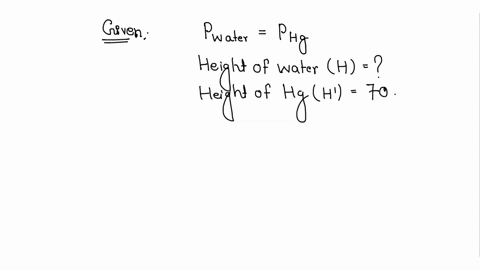 Given: P_water = P_Hg
Height of water (H) = ?
Height of Hg (H') = 70.